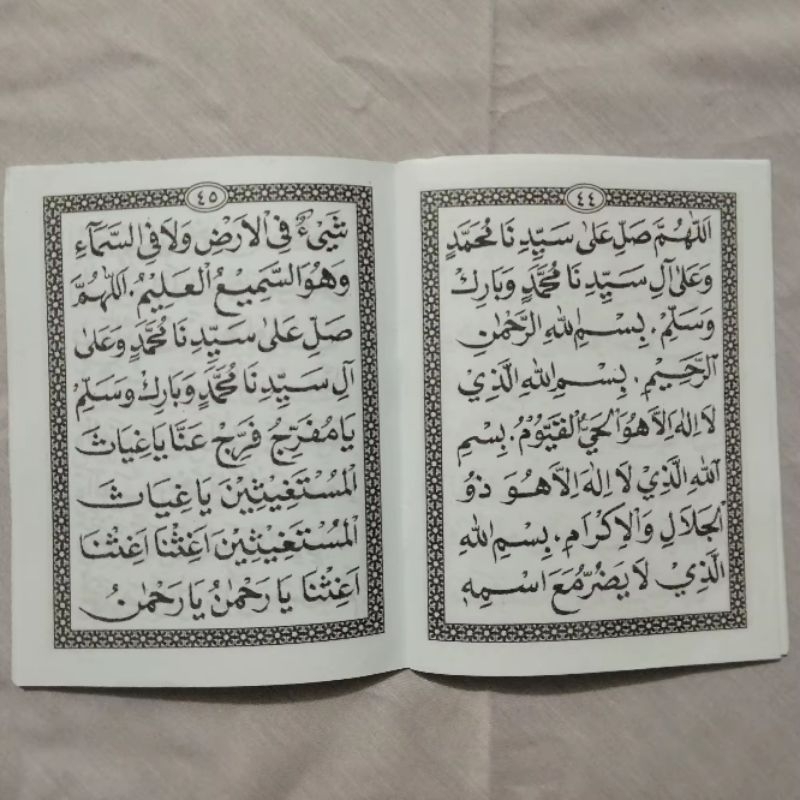 ٤٤
اَللّٰهُمَّ صَلِّ عَلىٰ سَيِّدِنَا مُحَمَّدٍ
وَعَلىٰ آلِ سَيِّدِنَا مُحَمَّدٍ وَبَارِكْ
وَسَلِّمْ. بِسْمِ اللهِ الرَّحْمٰنِ
الرَّحِيْمِ. بِسْمِ اللهِ الَّذِيْ
لَا اِلٰهَ اِلَّا هُوَ الْحَيُّ الْقَيُّوْمُ. بِسْمِ
اللهِ الَّذِيْ لَا اِلٰهَ اِلَّا هُوَ ذُو
الْجَلَالِ وَالْاِكْرَامِ. بِسْمِ اللهِ
الَّذِيْ لَا يَضُرُّ مَعَ اسْمِهِ
٤٥
شَيْءٌ فِي الْاَرْضِ وَلَا فِي السَّمَآءِ
وَهُوَ السَّمِيْعُ الْعَلِيْمُ. اَللّٰهُمَّ
صَلِّ عَلىٰ سَيِّدِنَا مُحَمَّدٍ وَعَلىٰ
آلِ سَيِّدِنَا مُحَمَّدٍ وَبَارِكْ وَسَلِّمْ
يَا مُفَرِّجُ فَرِّجْ عَنَّا يَا غِيَاثَ
الْمُسْتَغِيْثِيْنَ يَا غِيَاثَ
الْمُسْتَغِيْثِيْنَ اَغِثْنَا اَغِثْنَا
اَغِثْنَا يَا رَحْمٰنُ يَا رَحْمٰنُ